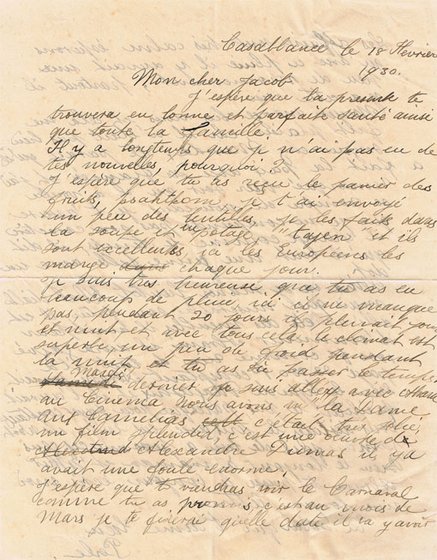 Casablanca le 18 Février
1930.
Mon cher Jacob
J'espère que la présente te
trouvera en bonne et parfaite santé ainsi
que toute la famille.
Il y a longtemps que je n'ai pas eu de
tes nouvelles, pourquoi?
J'espère que tu as reçu le panier des
fruits, je t'ai envoyé
un peu des lentilles, je les fais dans
la soupe et potage, "tajen" et ils
sont excellents, les Européens les
mange chaque jour.
Je suis très heureuse que tu as eu
beaucoup de pluie, ici il ne manque
pas, pendant 20 jours il pleuvait jour
et nuit et avec tous cela le climat est
superbe un peu de froid pendant
la nuit et tu as dû passer le temps
Mardi
dernier je suis allée avec
au Cinéma nous avons vu la Dame
aux Camélias c'était très jolie,
un film splendide c'est une œuvre d
Alexandre Dumas il y a
avait une foule énorme.
J'espère que tu viendras voir le Carnaval
comme tu as promis c'est au mois de
Mars je te dirai quelle date il va y avoir